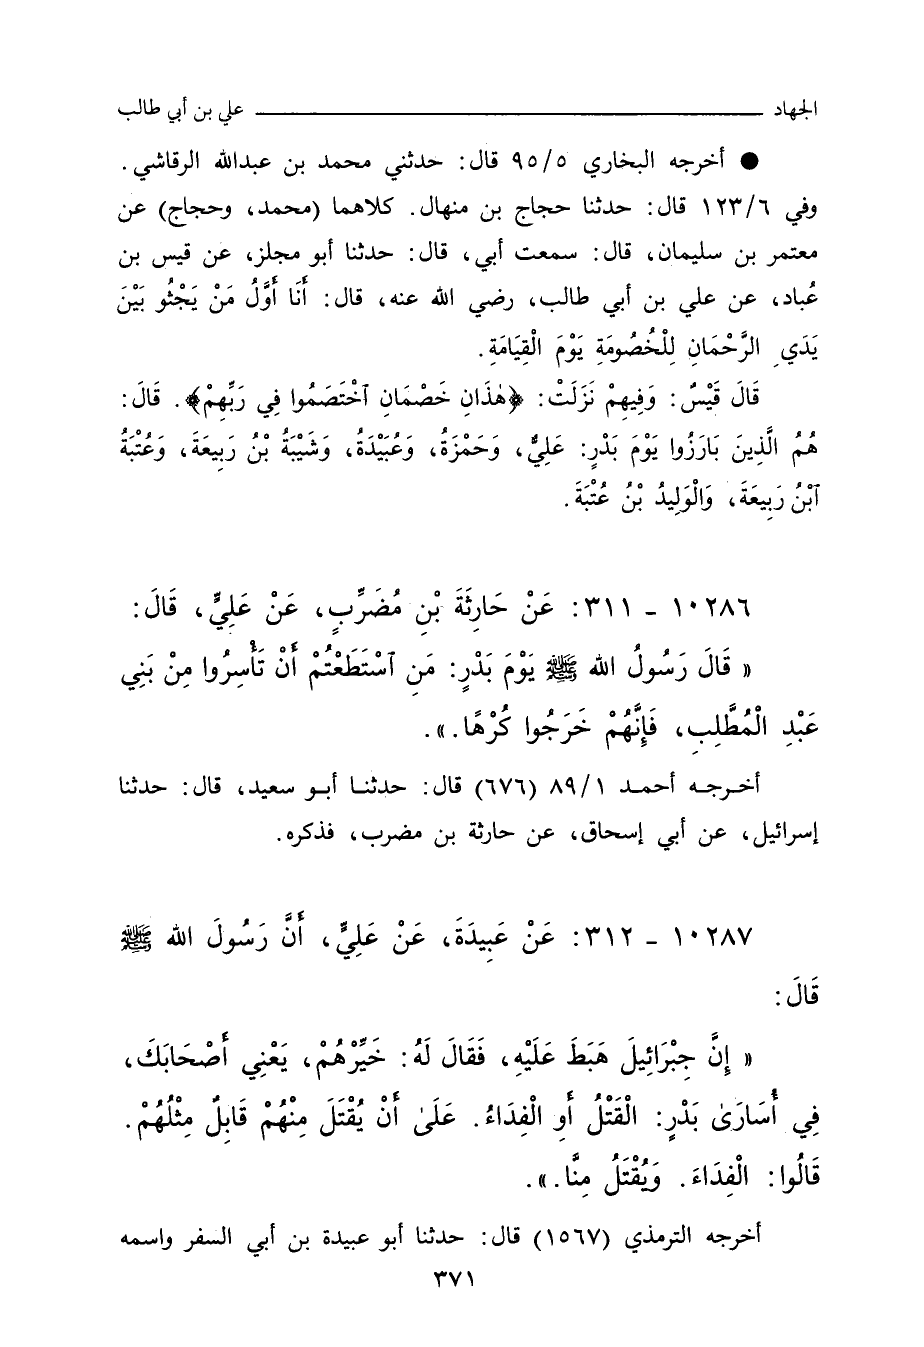 الجهاد ــــــــــ علي بن أبي طالب
● أخرجه البخاري ٩٥/٥ قال: حدثني محمد بن عبدالله الرقاشي.
وفي ١٢٣/٦ قال: حدثنا حجاج بن منهال. كلاهما (محمد، وحجاج) عن
معتمر بن سليمان، قال: سمعت أبي، قال: حدثنا أبو مجلز، عن قيس بن
عُباد، عن علي بن أبي طالب، رضي الله عنه، قال: أَنَا أَوَّلُ مَنْ يَجْثُو بَيْنَ
يَدَيِ الرَّحْمَانِ لِلْخُصُومَةِ يَوْمَ الْقِيَامَةِ.
قَالَ قَيْسٌ: وَفِيهِمْ نَزَلَتْ: ﴿هٰذَانِ خَصْمَانِ ٱخْتَصَمُوا فِي رَبِّهِمْ﴾. قَالَ:
هُمُ الَّذِينَ بَارَزُوا يَوْمَ بَدْرٍ: عَلِيٌّ، وَحَمْزَةُ، وَعُبَيْدَةُ، وَشَيْبَةُ بْنُ رَبِيعَةَ، وَعُتْبَةُ
ٱبْنُ رَبِيعَةَ، وَالْوَلِيدُ بْنُ عُتْبَةَ.
١٠٢٨٦ - ٣١١: عَنْ حَارِثَةَ بْنِ مُضَرِّبٍ، عَنْ عَلِيٍّ، قَالَ:
« قَالَ رَسُولُ الله ﷺ يَوْمَ بَدْرٍ: مَنِ ٱسْتَطَعْتُمْ أَنْ تَأْسِرُوا مِنْ بَنِي
عَبْدِ الْمُطَّلِبِ، فَإِنَّهُمْ خَرَجُوا كُرْهًا.».
أخرجه أحمد ٨٩/١ (٦٧٦) قال: حدثنا أبو سعيد، قال: حدثنا
إسرائيل، عن أبي إسحاق، عن حارثة بن مضرب، فذكره.
١٠٢٨٧ - ٣١٢: عَنْ عَبِيدَةَ، عَنْ عَلِيٍّ، أَنَّ رَسُولَ الله ﷺ
قَالَ:
« إِنَّ جِبْرَائِيلَ هَبَطَ عَلَيْهِ، فَقَالَ لَهُ: خَيِّرْهُمْ، يَعْنِي أَصْحَابَكَ،
فِي أُسَارَىٰ بَدْرٍ: الْقَتْلُ أَوِ الْفِدَاءُ. عَلَىٰ أَنْ يُقْتَلَ مِنْهُمْ قَابِلٌ مِثْلُهُمْ.
قَالُوا: الْفِدَاءَ. وَيُقْتَلُ مِنَّا.».
أخرجه الترمذي (١٥٦٧) قال: حدثنا أبو عبيدة بن أبي السفر واسمه
٣٧١